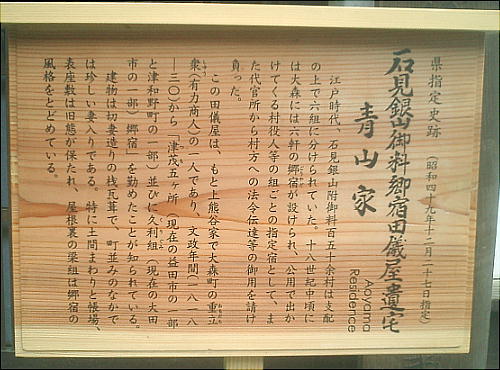 県指定史跡（昭和四十九年十二月二十七日指定）
石見銀山御料郷宿田儀屋遺宅
青山家
Aoyama
Residence
江戸時代、石見銀山附御料百五十余村は支配
の上で六組に分けられていた。十八世紀中頃に
は大森には六軒の郷宿が設けられ、公用で出か
けてくる村役人等の組ごとの指定宿として、ま
た代官所から村方への法令伝達等の御用を請け
負った。
この田儀屋は、もと上熊谷家で大森町の重立
衆（有力商人）の一人であり、文政年間（一八一八
―三〇）から「津茂五ヶ所（現在の益田市の一部
と津和野町の一部）並びに久利組（現在の大田
市の一部）郷宿」を勤めたことが知られている。
建物は切妻造りの桟瓦葺で、町並みのなかで
は珍しい妻入りである。特に土間まわりと帳場、
表座敷は旧態が保たれ、屋根裏の梁組は郷宿の
風格をとどめている。